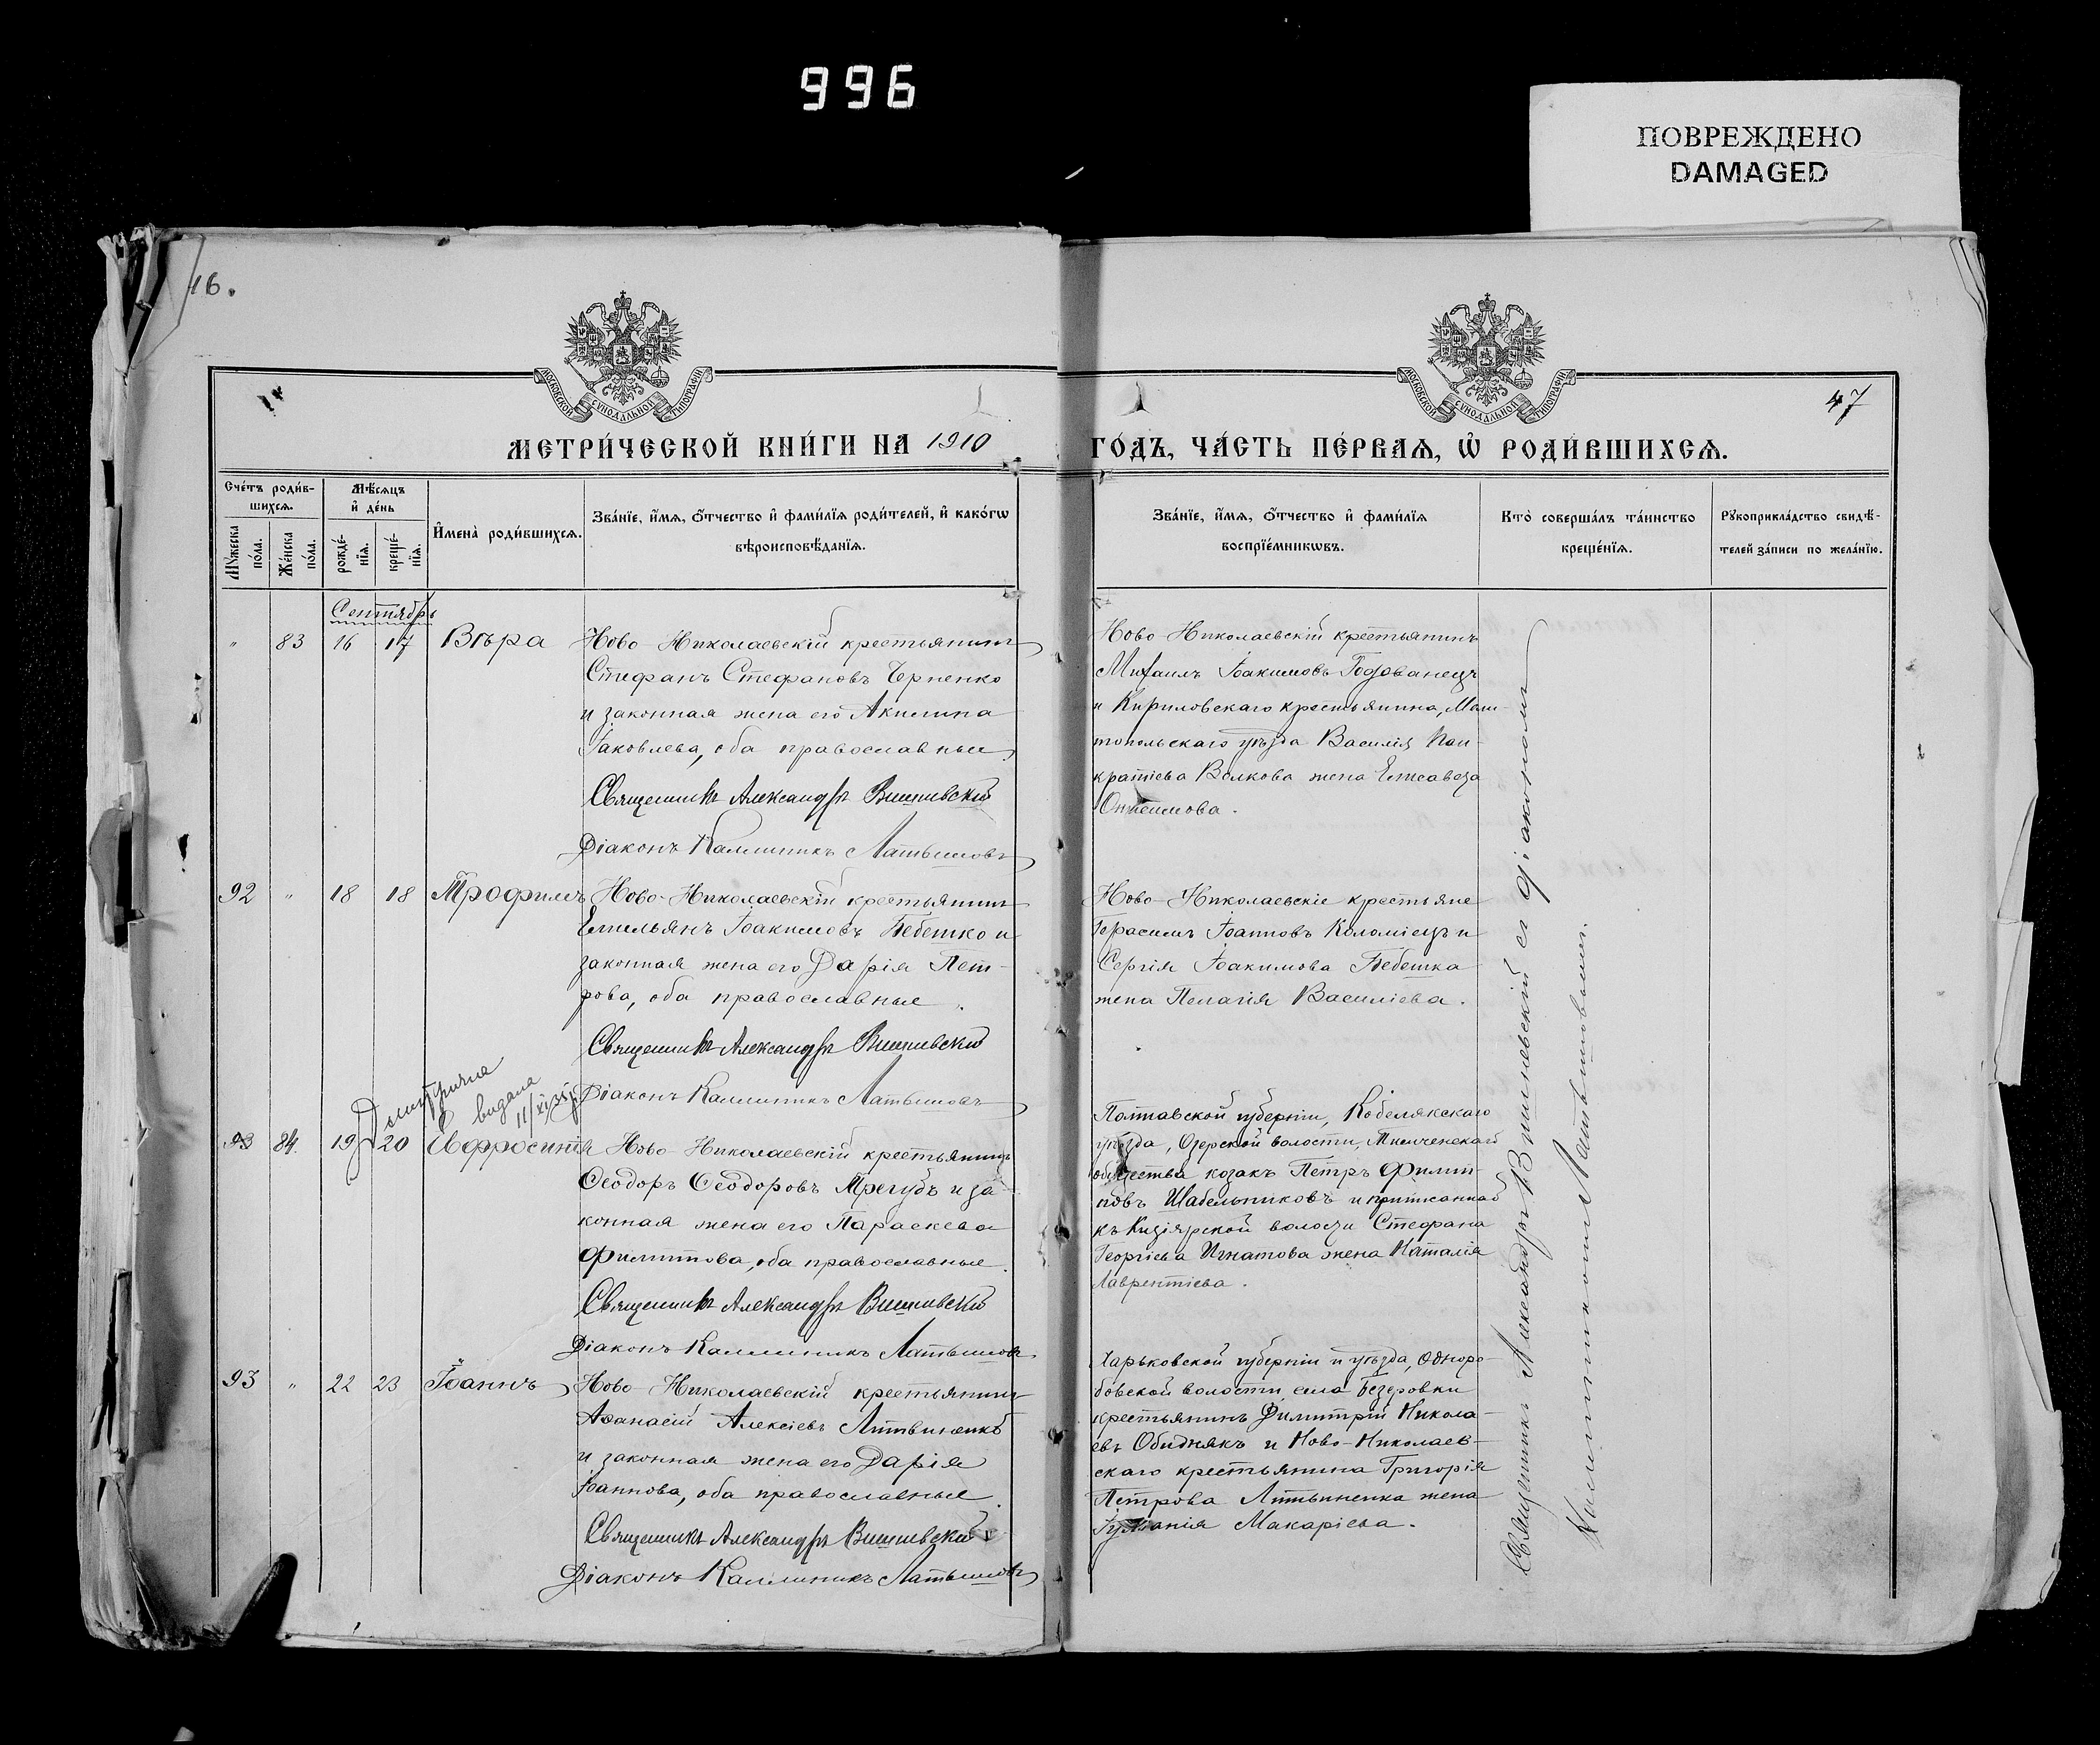 996
ПОВРЕЖДЕНО
DAMAGED
16.
47
МОСКОВСКОЙ СѴНОДАЛЬНОЙ ТИПОГРАФІИ
МОСКОВСКОЙ СѴНОДАЛЬНОЙ ТИПОГРАФІИ
МЕТРИ́ЧЕСКОЙ КНИ́ГИ НА 1910
ГО́ДЪ, ЧА́СТЬ ПЕ́РВАѦ, Ѡ҆ РОДИ́ВШИХСѦ.
Сче́тъ роди́в-
шихсѧ.
Мꙋ́жеска по́ла.
Же́нска по́ла.
Мѣ́сѧцъ
и҆ де́нь
рожде́-нїѧ.
креще́-нїѧ.
И҆мена̀ роди́вшихсѧ.
Зва́нїе, и҆́мѧ, ѻ҆́тчество и҆ фами́лїѧ роди́телей, и҆ како́гѡ
вѣроисповѣ́данїѧ.
Зва́нїе, и҆́мѧ, ѻ҆́тчество и҆ фами́лїѧ
воспрїе́мникѡвъ.
Кто̀ соверша́лъ та́инство
креще́нїѧ.
Рꙋкоприкла́дство свидѣ́-
телей за́писи по жела́нїю.
Сентябрь
" 83 16 17 Вѣра
Ново-Николаевскій крестьянинъ
Стефанъ Стефановъ Черненко
и законная жена его Акилина
Іаковлева, оба православные
Священникъ Александръ Вишневскій
Діаконъ Каллиникъ Латышовъ
Ново-Николаевскій крестьянинъ
Михаилъ Іоакимовъ Годованецъ
и Кириловскаго крестьянина, Мели-
топольскаго уѣзда Василія Пан-
кратіева Волкова жена Елисавета
Онисимова.
92 " 18 18 Трофимъ
Ново-Николаевскій крестьянинъ
Емельянъ Іоакимовъ Бебешко и
законная жена его Дарія Пет-
рова, оба православные.
Священникъ Александръ Вишневскій
Діаконъ Каллиникъ Латышовъ
Ново-Николаевскіе крестьяне
Герасимъ Іоанновъ Коломіецъ и
Сергія Іоакимова Бебешка
жена Пелагія Василіева.
видана
11/XI
93 84. 19 20 Евфросинія
Ново-Николаевскій крестьянинъ
Ѳеодоръ Ѳеодоровъ Трегубъ и за-
конная жена его Параскева
Филиппова, оба православные.
Священникъ Александръ Вишневскій
Діаконъ Каллиникъ Латышовъ
Полтавской губерніи, Кобелякскаго
уѣзда, Озерской волости,
общества козакъ Петръ Филип-
повъ Шабельниковъ и приписаннаго
къ Кизіярской волости Стефана
Георгіева Игнатова жена Наталія
Лаврентіева.
93 " 22 23 Іоаннъ
Ново-Николаевскій крестьянинъ
Аѳанасій Алексіевъ Литвиненко
и законная жена его Дарія
Іоаннова, оба православные.
Священникъ Александръ Вишневскій
Діаконъ Каллиникъ Латышовъ
Харьковской губерніи и уѣзда, Одноро-
бовской волости села
крестьянинъ Димитрій Никола-
евъ Обиднякъ и Ново-Николаев-
скаго крестьянина Григорія
Петрова Литвиненка жена
Макаріева.
Священникъ Александръ Вишневскій съ діакономъ
Каллиникомъ Латышовымъ.